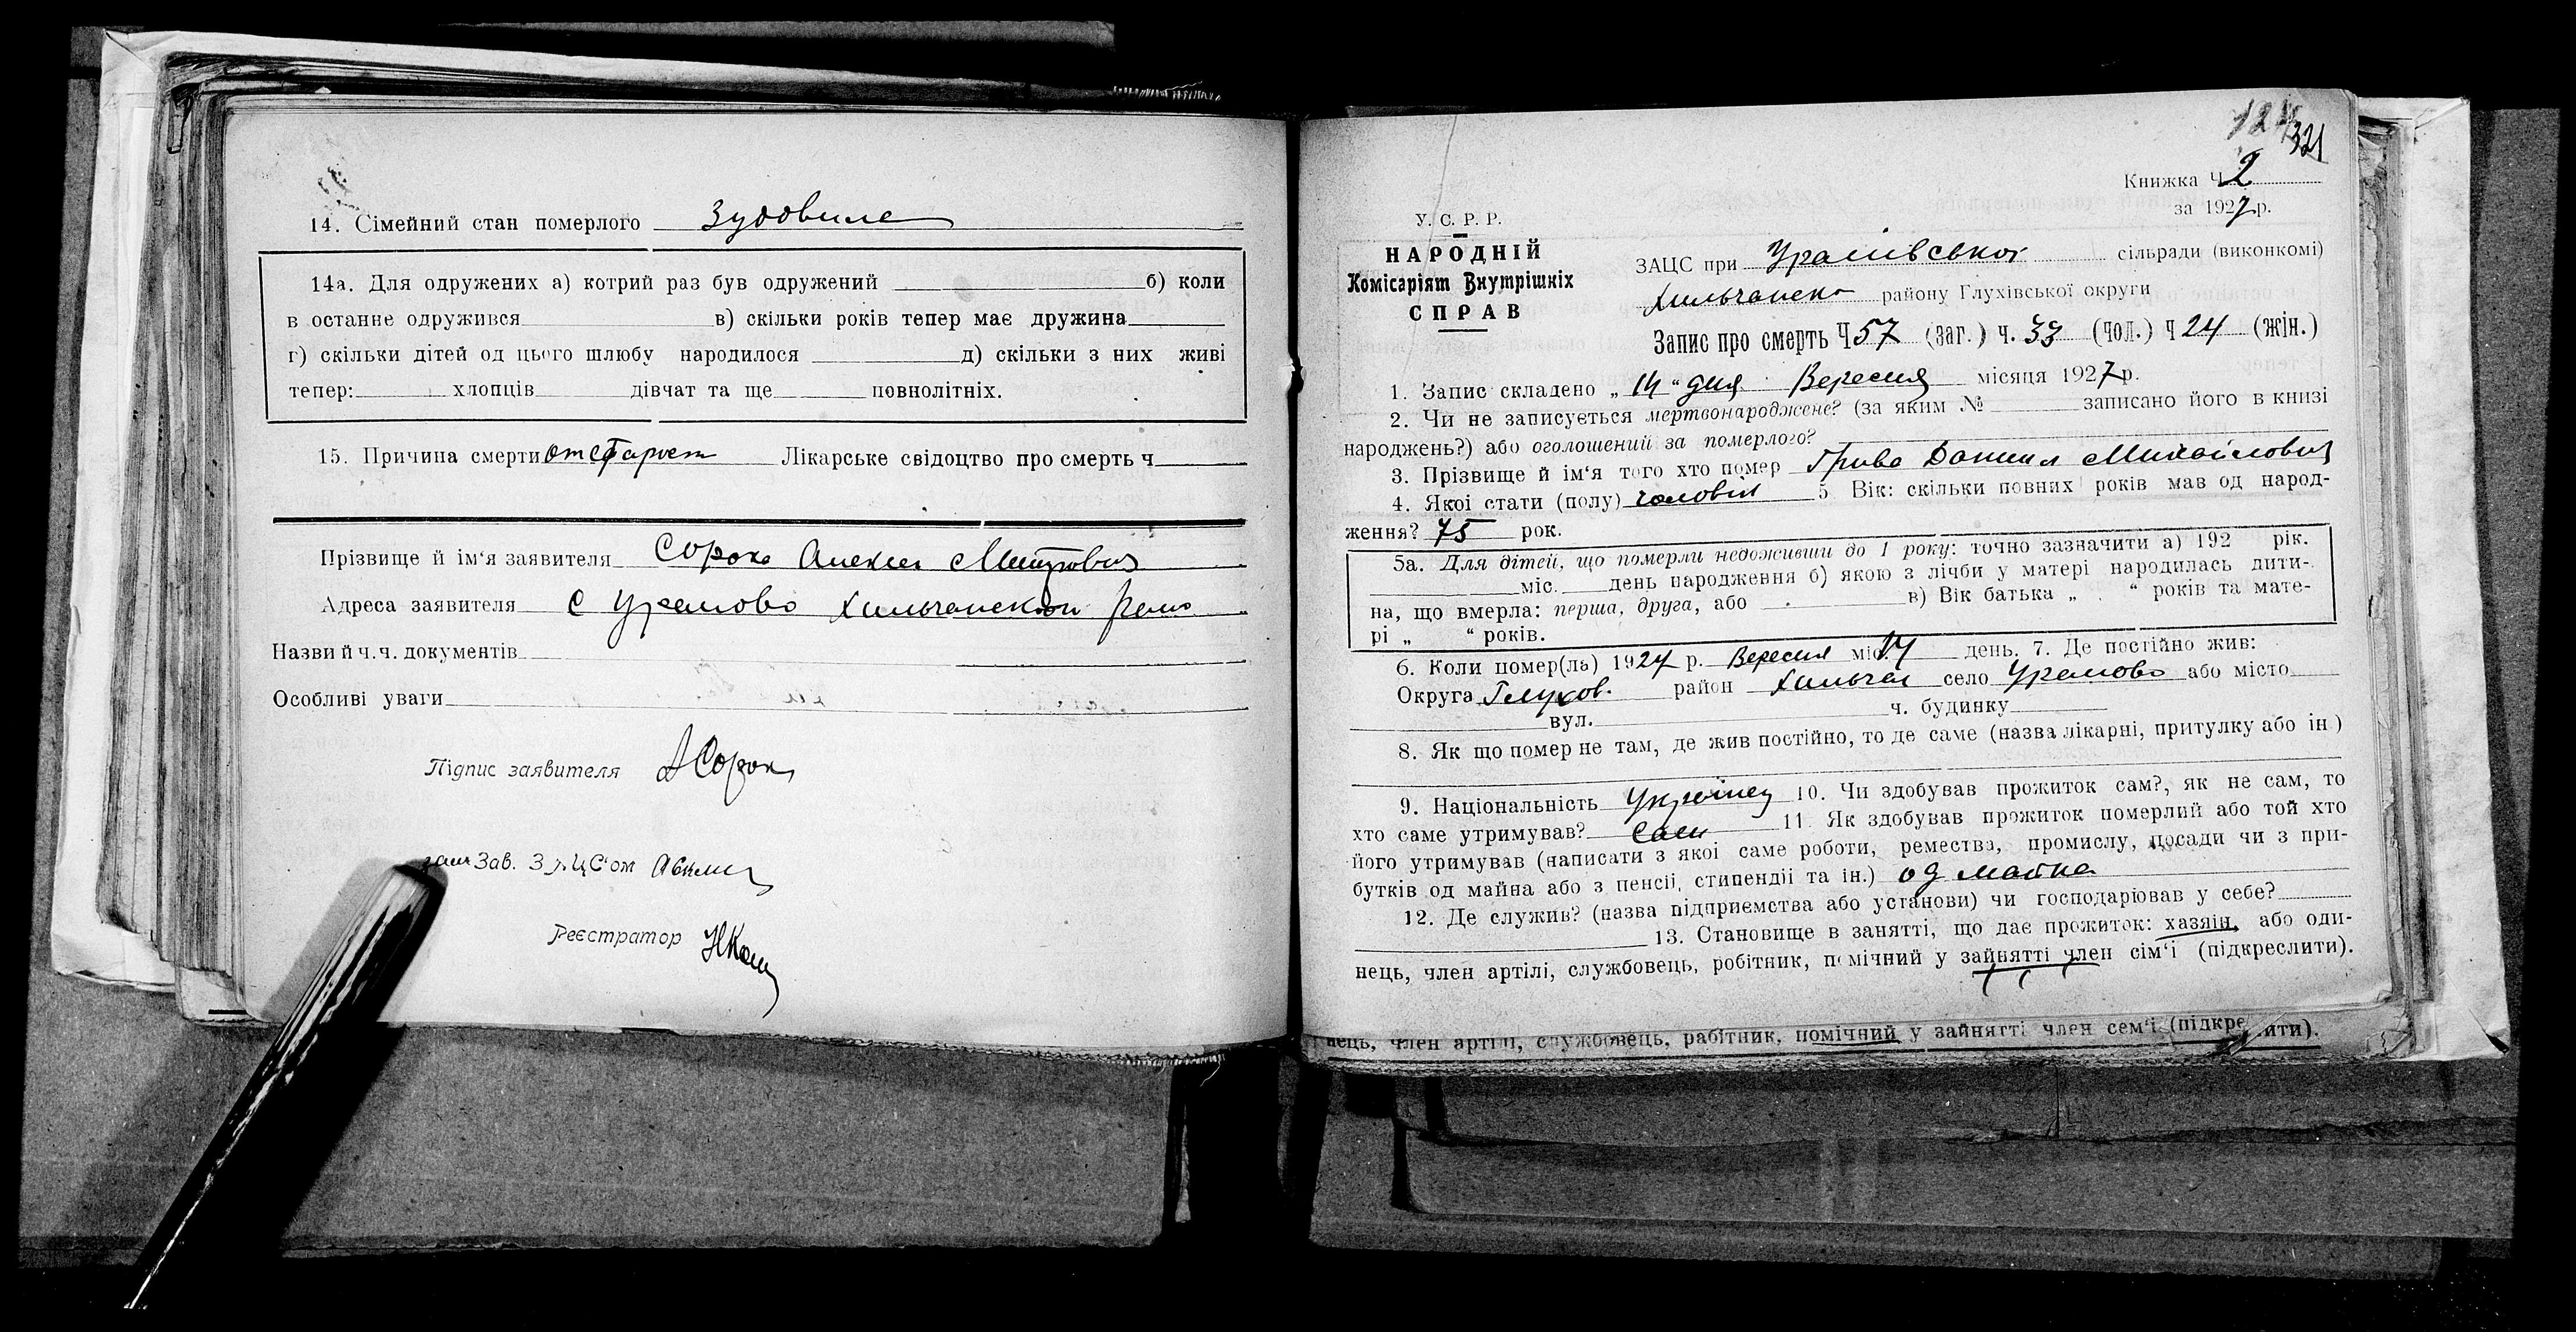 14. Сімейний стан померлого
14а. Для одружених а) котрий раз був одружений б) коли
в останнє одружився в) скільки років тепер має дружина
г) скільки дітей од цього шлюбу народилося д) скільки з них живі
тепер: хлопців дівчат та ще повнолітніх.
15. Причина смерти от старост Лікарське свідоцтво про смерть ч
Прізвище й ім‘я заявителя Сорока Алексей
Адреса заявителя с Уралово
Назви й ч.ч. документів
Особливі уваги
Підпис заявителя АСорок
зам Зав. ЗАЦС‘ом
Реєстратор
124
321
Книжка Ч 2
за 1927 р.
У. С. Р. Р.
НАРОДНІЙ
Комісаріят Внутрішніх
СПРАВ
ЗАЦС при Уралівської сільради (виконкомі)
Хильчанско району Глухівської округи
Запис про смерть Ч 57 (заг.) ч. 33 (чол.) ч 24 (жін.)
1. Запис складено „14“ дня Вересня місяця 1927 р.
2. Чи не записується мертвонароджене? (за яким № записано його в книзі
народжень?) або оголошений за померлого?
3. Прізвище й ім‘я того хто помер Грива Даниил Михайлович
4. Якої стати (полу) чоловік 5 Вік: скільки повних років мав од народ-
ження? 75 рок.
5а. Для дітей, що померли недоживши до 1 року: точно зазначити а) 192 рік.
міс. день народження б) якою з лічби у матері народилась дити-
на, що вмерла: перша, друга, або в) Вік батька „ “ років та мате-
рі „ “ років.
6. Коли помер(ла) 1927 р. Вересня міс. 14 день. 7. Де постійно жив:
Округа Глухов. район Хильчан село Уралово або місто
вул. ч. будинку
8. Як що помер не там, де жив постійно, то де саме (назва лікарні, притулку або ін.)
9. Національність Українец 10. Чи здобував прожиток сам?, як не сам, то
хто саме утримував? Сам 11. Як здобував прожиток померлий або той хто
його утримував (написати з якої саме роботи, ремества, промислу, посади чи з при-
бутків од майна або з пенсії, стипендії та ін.) од майна
12. Де служив? (назва підприємства або установи) чи господарював у себе?
13. Становище в занятті, що дає прожиток: хазяїн, або оди-
нець, член артілі, службовець, робітник, помічний у зайнятті член сім‘ї (підкреслити).
нець, член артілі, службовець, рабітник, помічний у зайнятті член сем‘ї (підкре ити).